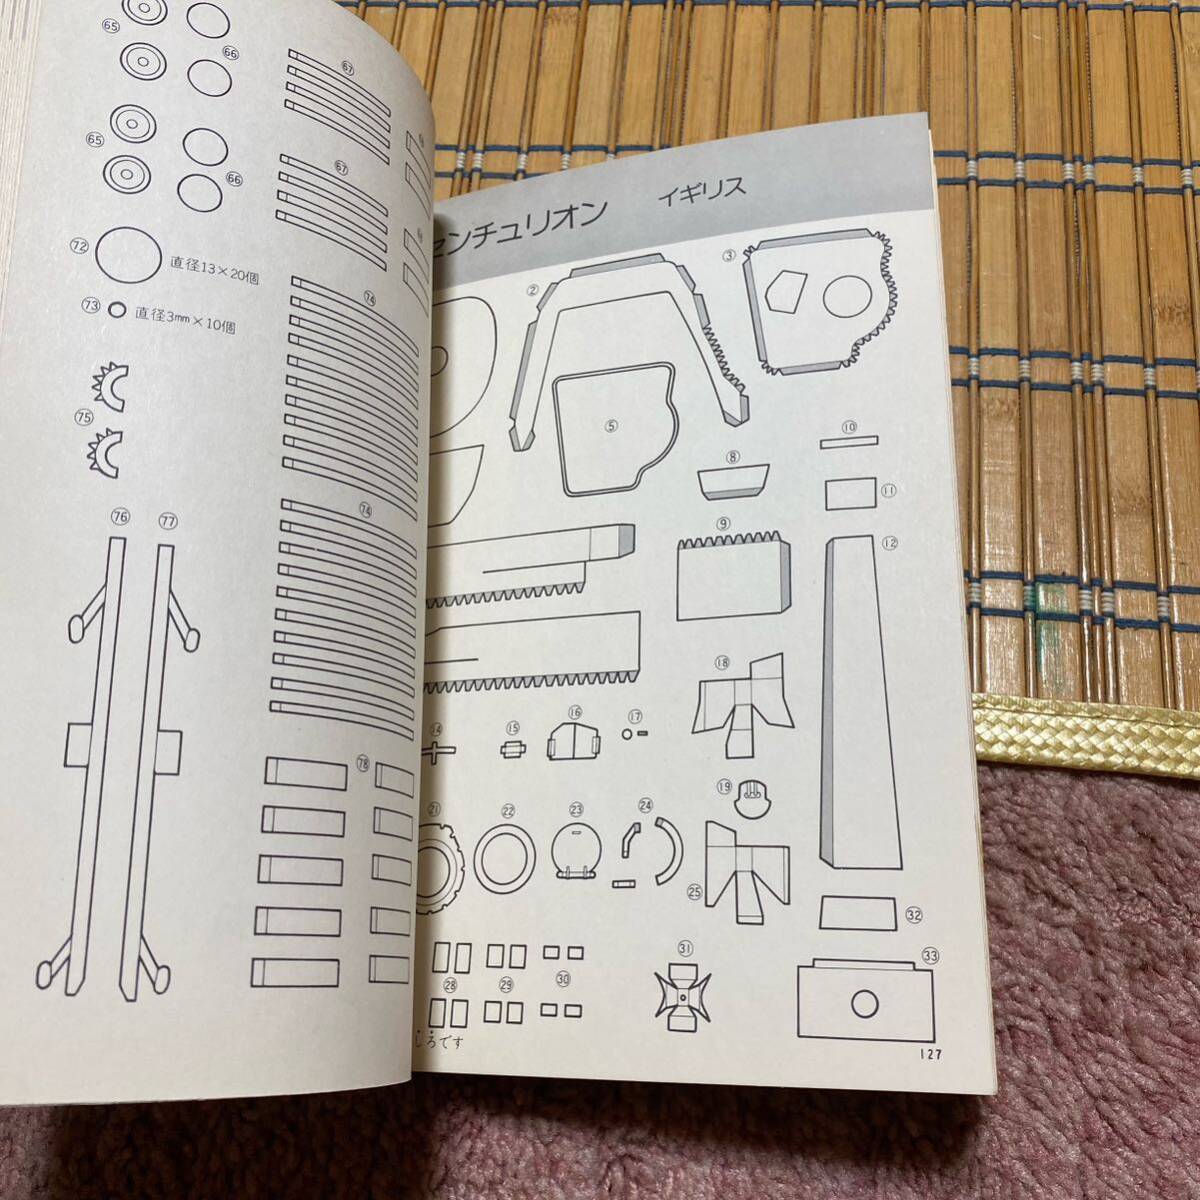 65
66
67
65
66
67
68
68
72 直径13×20個
73 直径3mm×10個
74
75
74
76
77
78
センチュリオン イギリス
2
3
5
8
9
10
11
12
14
15
16
17
18
19
21
22
23
24
25
28
29
30
31
32
33
ころです
127